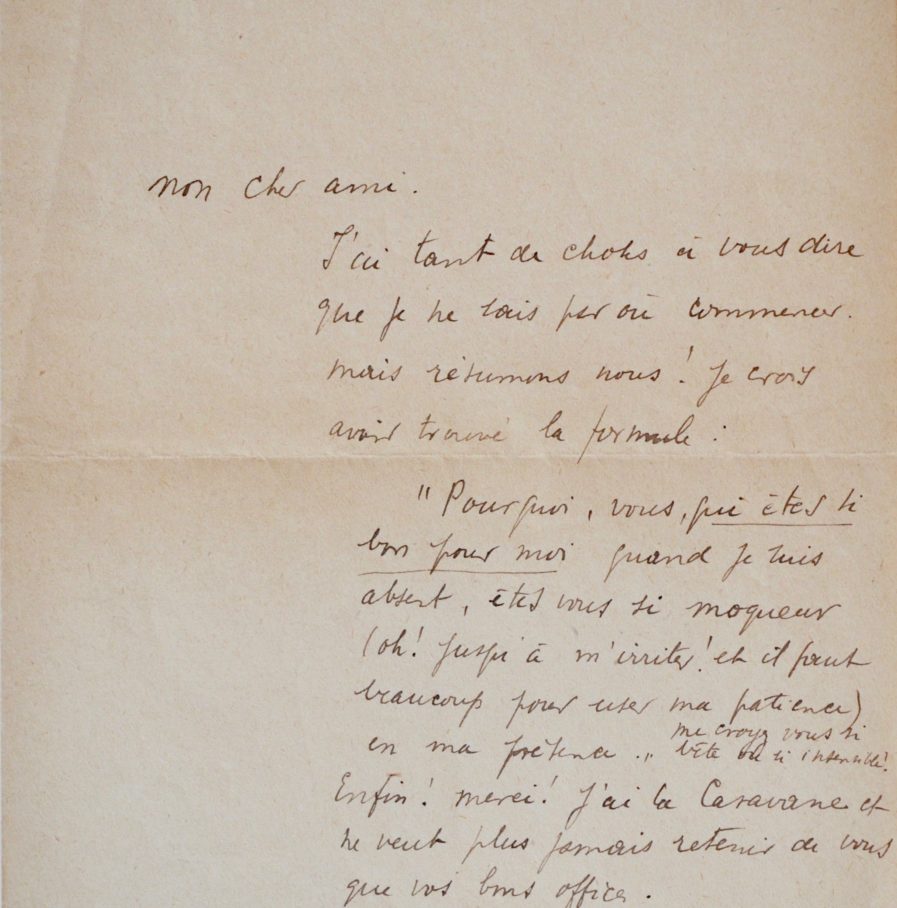 mon cher ami.
J'ai tant de choses à vous dire
que je ne sais par où commencer.
mais résumons nous! Je crois
avoir trouvé la formule :
"Pourquoi, vous, qui êtes si
bon pour moi quand je suis
absent, êtes vous si moqueur
(oh! jusqu'à m'irriter! et il faut
beaucoup pour user ma patience)
en ma présence." me croyez vous si
bête ou si insensible!
Enfin! merci! J'ai la Caravane et
ne veut plus jamais retenir de vous
que vos bons offices.